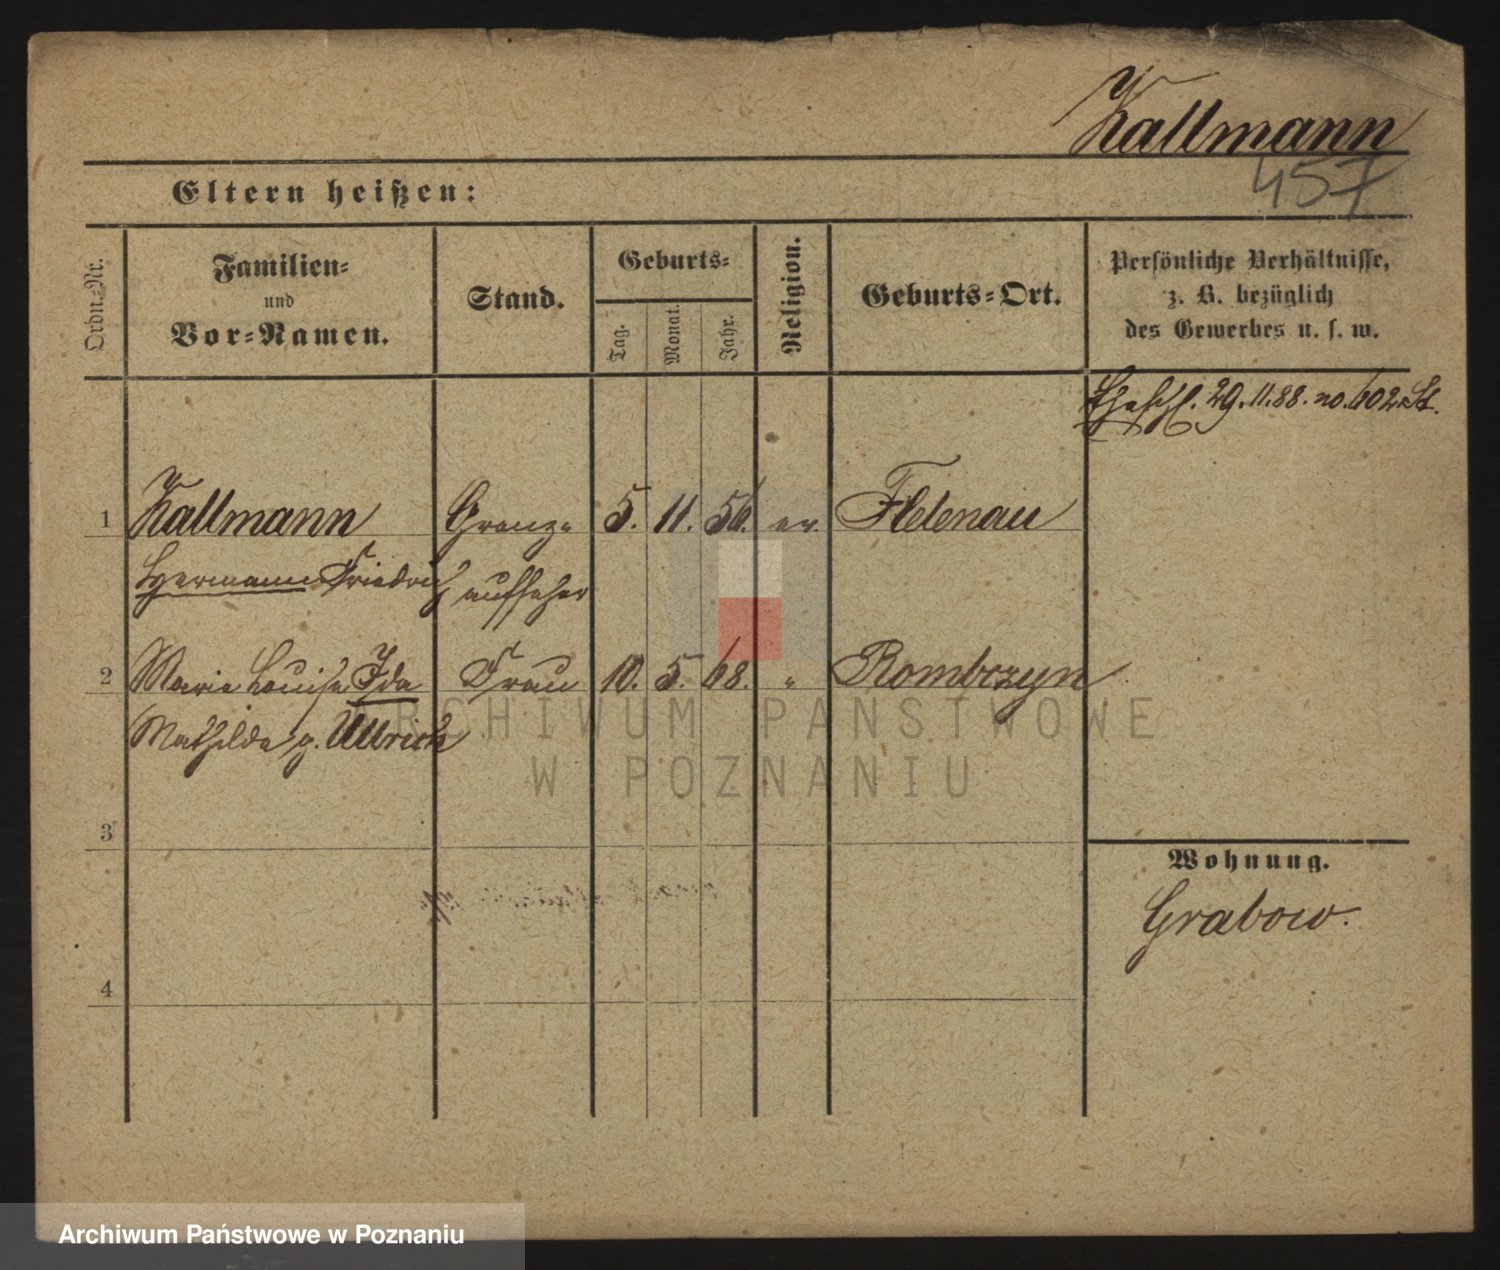 Kallmann
457
Eltern heißen:
Ordn.-Nr.
Familien-
und
Vor-Namen.
Stand.
Geburts-
Tag.
Monat.
Jahr.
Religion.
Geburts-Ort.
Persönliche Verhältnisse,
z. B. bezüglich
des Gewerbes u. s. w.
Eheschl. 29.11.88. no. 602 St.
1 Kallmann Grenz- 5. 11. 56. ev. Helenau
Hermann Friedrich aufseher
2 Marie Louise Ida Frau 10. 5. 68. " Rombczyn
Mathilde g. Ullrich
3
4
Wohnung.
Grabow.
ARCHIWUM PAŃSTWOWE
W POZNANIU
Archiwum Państwowe w Poznaniu